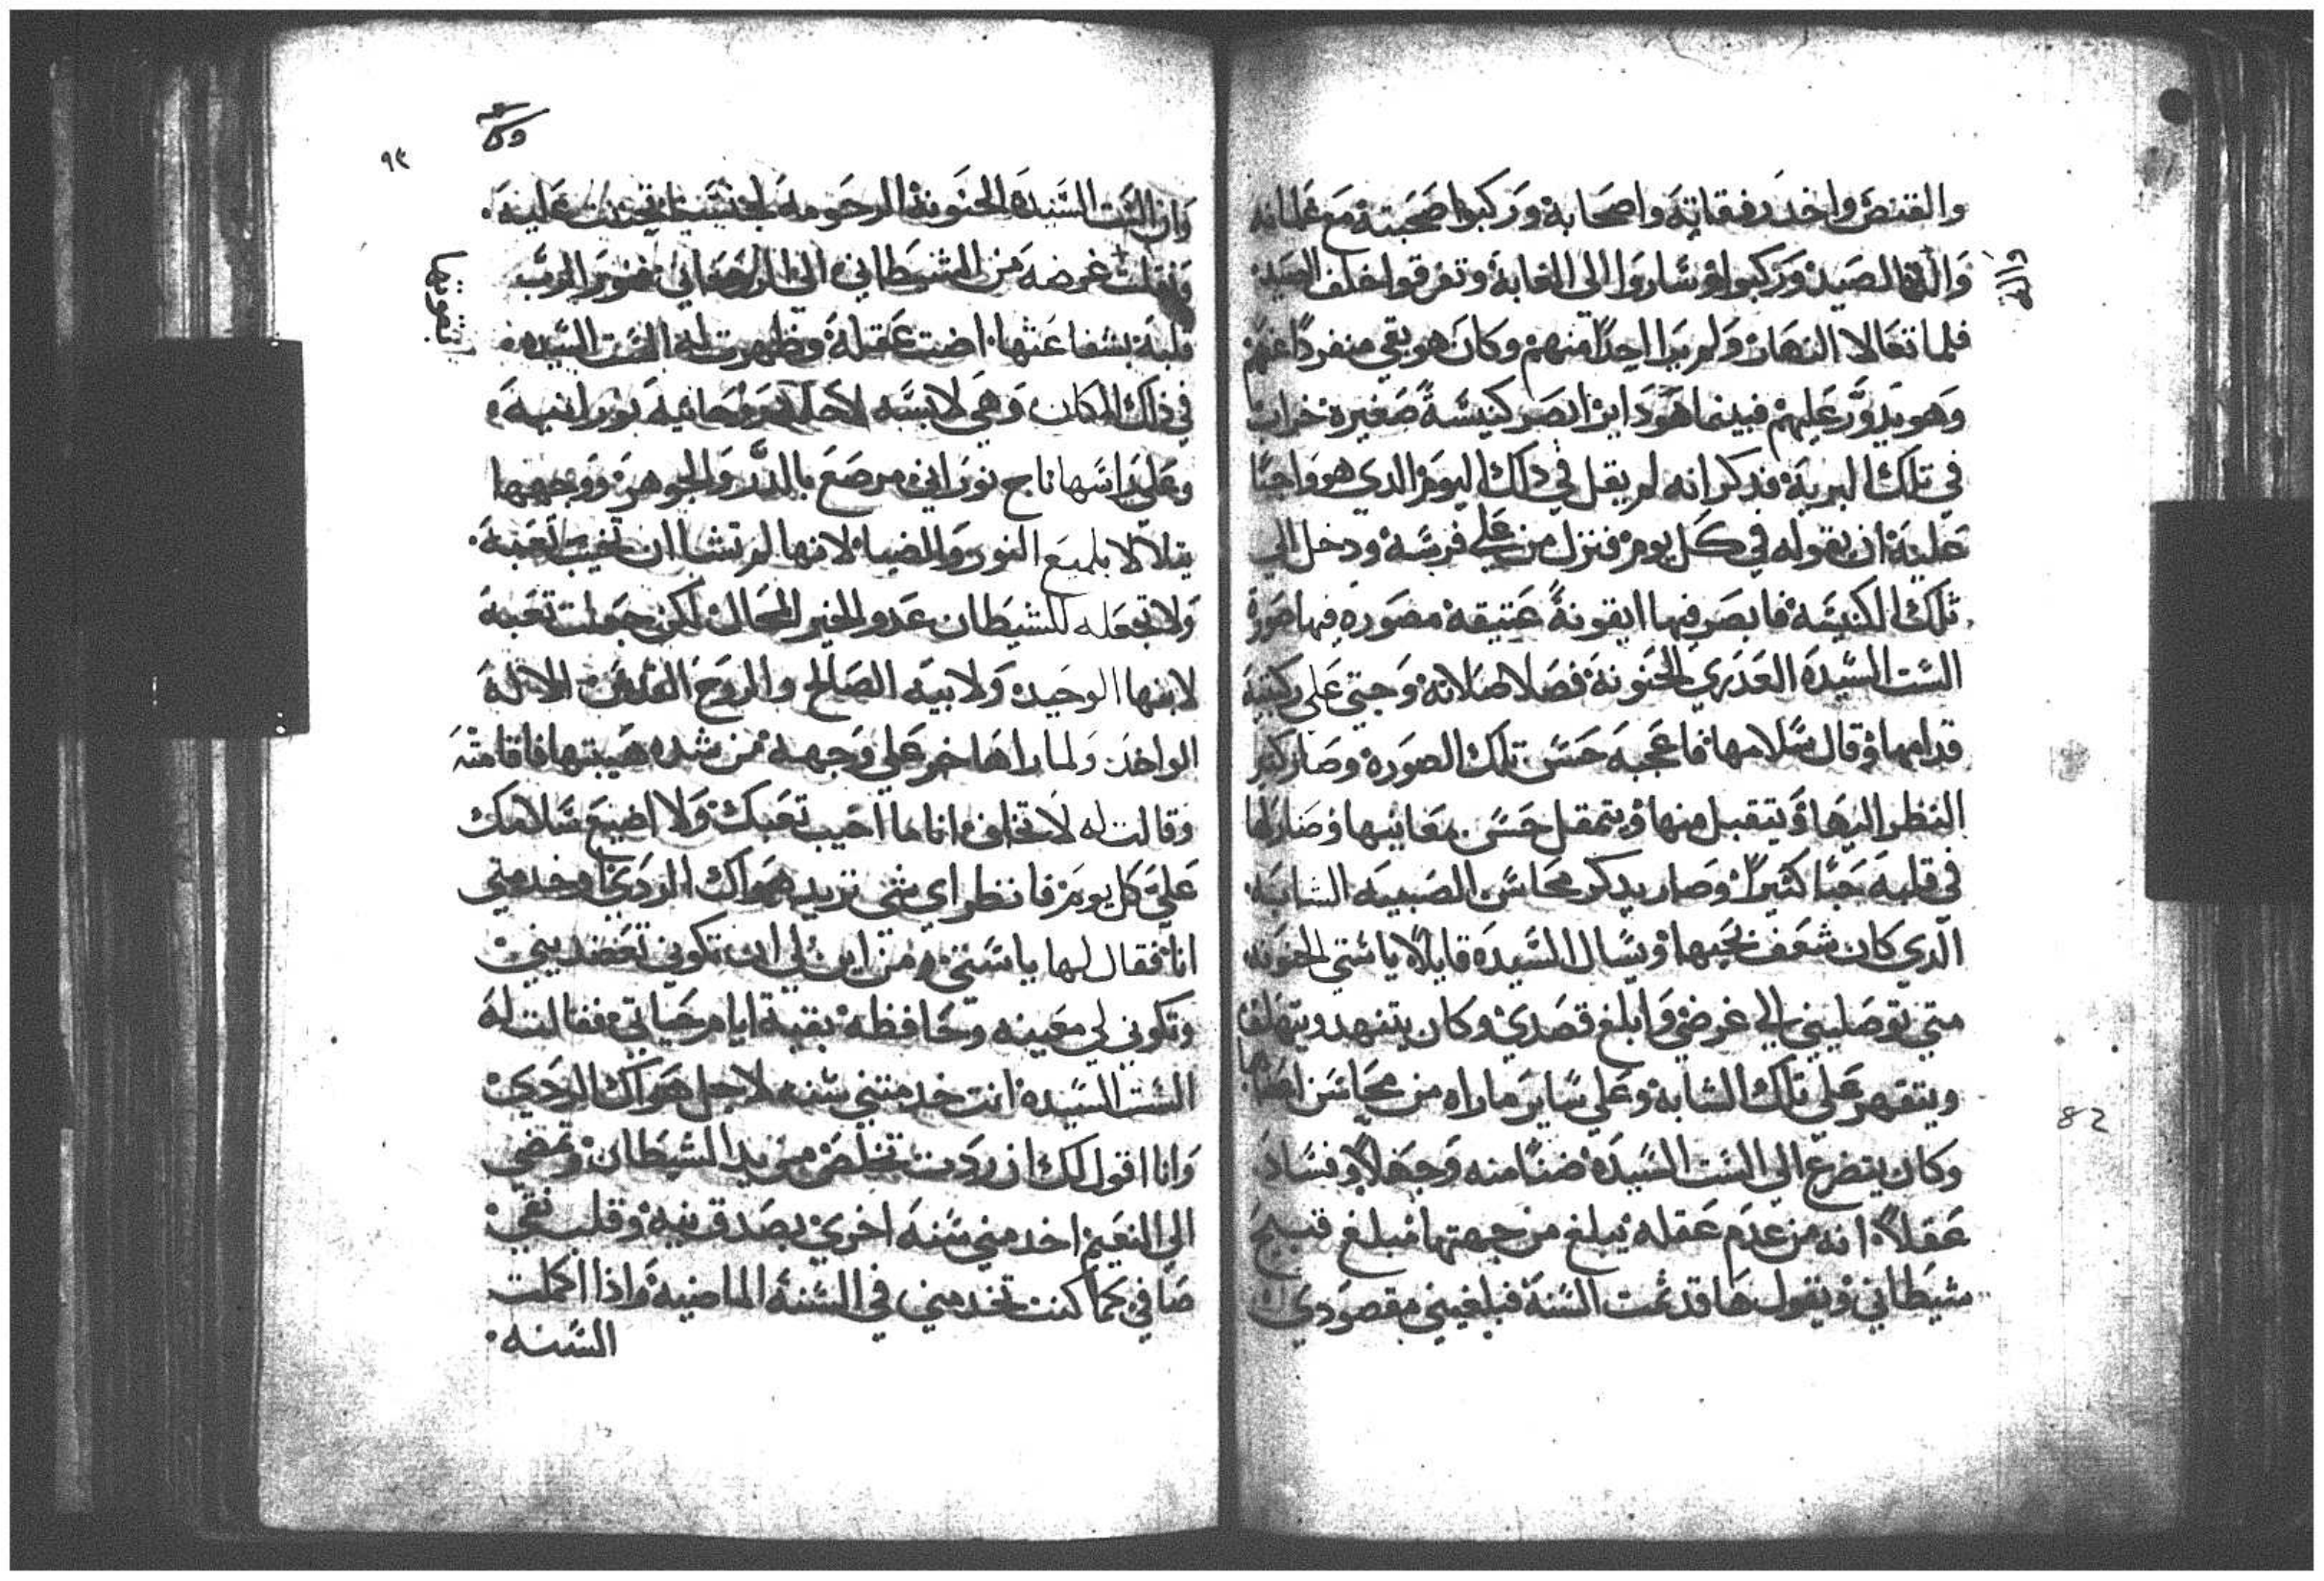 والقنص واخد رفقاته واصحابه وركبوا صحبته مع غلمانه
والة الصيد وركبوا وساروا الى الغابة وتفرقوا خلف الصيد
فلما تعالا النهار ولم يرا احدًا منهم وكان هو بقي منفردًا عنهم
وهو يدوّر عليهم فبينما هو داير ابصر كنيسةً صغيره خراب
في تلك البريه فدكر انه لم يقل في دلك اليوم الدي هو واجبًا
عليه ان يقوله في كل يوم فنزل من على فرسه ودخل الي
تلك الكنيسه فابصر فيها ايقونةً عتيقه مصوره فيها صورة
الست السيده العدري الحنونه فصلا صلاته وجتي على ركبتيه
قدامها وقال سلامها فاعجبه حسن تلك الصوره وصار كتير
النظر اليها ويتقبل منها ويتمقل حسن معانيها وصار لها
في قلبه حبًا كثيرًا وصار يدكر محاسن الصبيه الشابه
الدي كان شغف بحبها ويسال السيده قايلًا يا ستي الحنونه
متي توصليني الي غرضي وابلغ قصدي وكان يتنهد ويتهلف
ويتقهر علي تلك الشابه وعلي ساير ماراه من محاسن اعضاها
وكان يتضرع الى الست السيده ضنًا منه وجهلًا وفساد
عقلًا انه من عدم عقله يبلغ من جهتها مبلغ قبيح
شيطاني ويقول ها قد تمت السنه فبلغيني مقصودي
٩٣
وان الست السيده الحنونه المرحومه لجنسنا تحننت عليه
ونقلت غرضه من الشيطاني الى الروحاني فنور الرب
قلبه بشفاعتها اضت عقله وظهرت له الست السيده
في ذلك المكان وهي لابسه لاحله روحانيه نورانيه
وعلي راسها تاج نوراني مرصع بالدر والجوهر ووجهها
يتلالا بلميع النور والضياء لانها لم تشا ان تخيب تعبه
ولا تجعله للشيطان عدو الخير المحال لكن جعلت تعبه
لابنها الوحيد ولابيه الصالح والروح القدس الاله
الواحد ولما راها خر علي وجهه من شده هيبتها فاقامته
وقالت له لا تخاف انا ما اخيب تعبك ولا اضيع سلامك
علي كل يوم فانظر اي شي تريد هواك الردي او خدمتي
انا فقال لها يا ستي ومن اين لي ان تكوني تعضديني
وتكوني لي معينه وحافظه بقية ايام حياتي فقالت له
الست السيده انت خدمتني سنه لاجل هواك الردي
وانا اقول لك ان ردت تخلص من يد الشيطان وتمضي
الي النعيم اخدمني سنه اخري بصدق نيه وقلب نقي
صافي كما كنت تخدمني في السنه الماضيه واذا اكملت
السنه
82